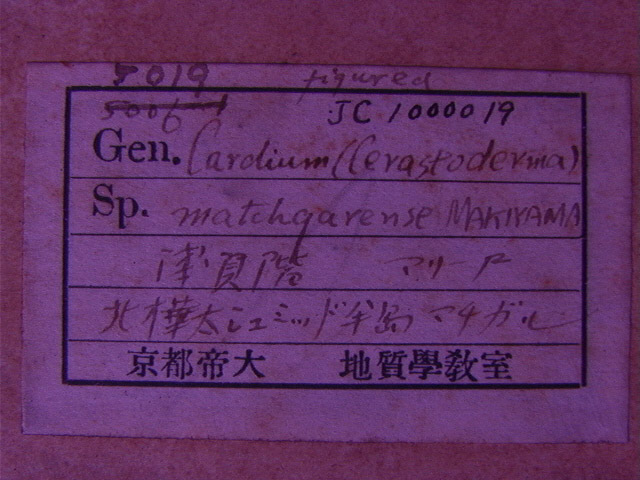 5019 figured
5006 JC1000019
Gen. Cardium (Cerastoderma)
Sp. matchgarense MAKIYAMA
階 マリー
北樺太シュミッド半島 マチガル
京都帝大 地質學教室